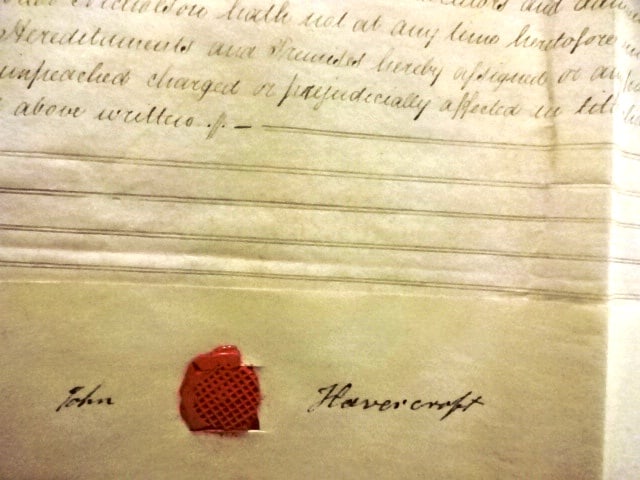 Nicholson hath not at any time heretofore
Hereditaments and Premises hereby assigned or any
unpeached charged or prejudicially affected in tit
above written
John Havercroft